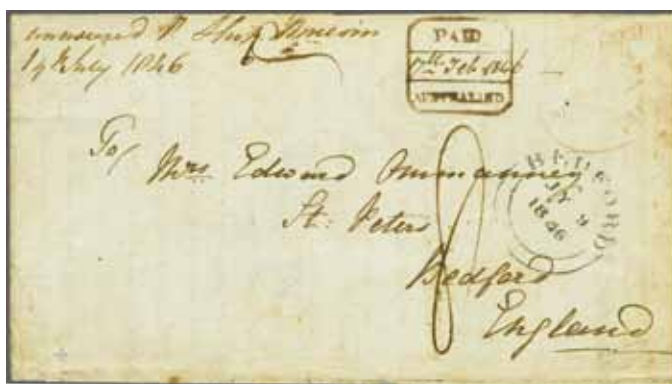 answered P Ship
14 July 1846
PAID
17th Feb 1846
AUSTRALIND
To/
Mrs Edward Ommanney
St. Peters
Bedford
England
8
BEDFORD
JY 9
1846